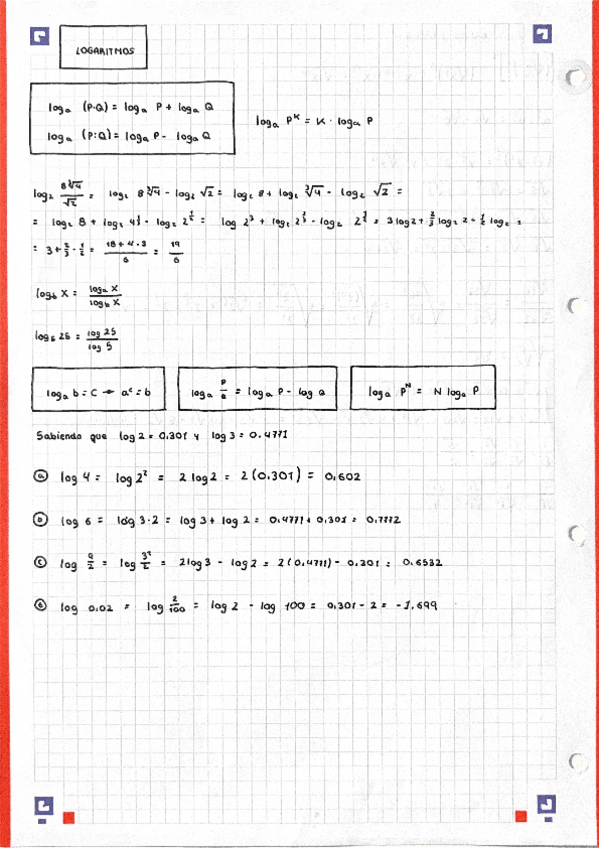 LOGARITMOS
logₐ (P·Q) = logₐ P + logₐ Q
logₐ (P:Q) = logₐ P - logₐ Q
logₐ Pᴷ = K · logₐ P
log₂ 8∛4/√2 = log₂ 8∛4 - log₂ √2 = log₂ 8 + log₂ ∛4 - log₂ √2 =
= log₂ 8 + log₂ 4^(1/3) - log₂ 2^(1/2) = log 2³ + log₂ 2^(2/3) - log₂ 2^(1/2) = 3 log 2 + 2/3 log₂ 2 - 1/2 log₂ =
= 3 + 2/3 - 1/2 = (18 + 4 - 3)/6 = 19/6
log_b X = logₐ X / log_b X
log₅ 25 = log 25 / log 5
logₐ b = C → aᶜ = b
logₐ P/Q = logₐ P - log Q
logₐ Pᴺ = N logₐ P
Sabiendo que log 2 = 0.301 y log 3 = 0.4771
ⓐ log 4 = log 2² = 2 log 2 = 2 (0.301) = 0.602
ⓑ log 6 = log 3·2 = log 3 + log 2 = 0.4771 + 0.301 = 0.7772
ⓒ log 9/2 = log 3²/2 = 2 log 3 - log 2 = 2 (0.4771) - 0.301 = 0.6532
log 0.02 = log 2/100 = log 2 - log 100 = 0.301 - 2 = -1.699